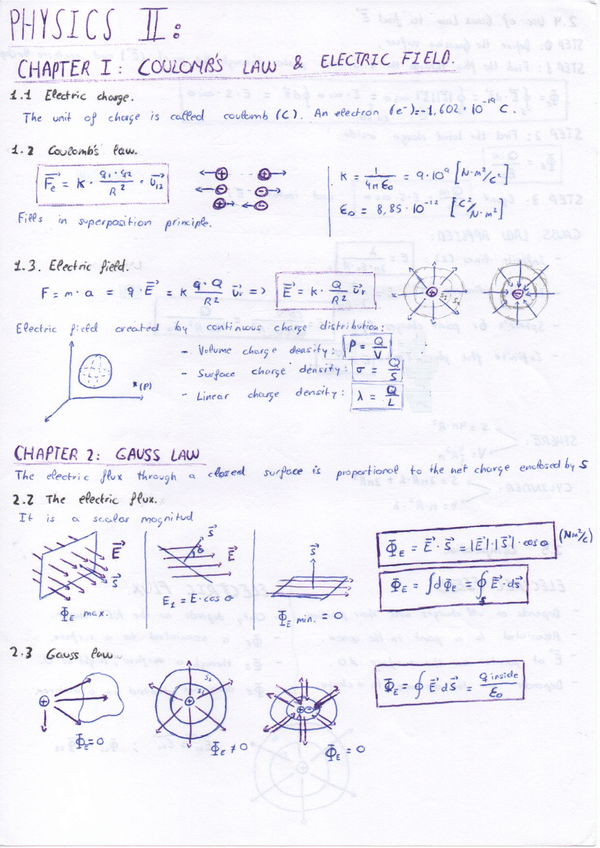 PHYSICS II:
CHAPTER I: COULOMB'S LAW & ELECTRIC FIELD.
1.1 Electric charge.
The unit of charge is called coulomb (C). An electron (e⁻)=-1,602·10⁻¹⁹ C.
1.2 Coulomb's law.
F⃗e = K · q₁·q₂/R² · u⃗₁₂
K = 1/4πε₀ = 9·10⁹ [N·m²/C²]
ε₀ = 8,85·10⁻¹² [C²/N·m²]
Fills in superposition principle.
1.3. Electric field.
F = m·a = q·E⃗ = K q·Q/R² u⃗r => E⃗ = K · Q/R² u⃗r
S₂ S₁
Electric field created by continuous charge distribution:
- Volume charge density: ρ = Q/V
- Surface charge density: σ = Q/S
- Linear charge density: λ = Q/L
x(P)
CHAPTER 2: GAUSS LAW
The electric flux through a closed surface is proportional to the net charge enclosed by S
2.2 The electric flux.
It is a scalar magnitud
E⃗ S⃗
Φ_E max.
S⃗ θ E⃗
E₁ = E·cos θ
S⃗
Φ_E min. = 0
Φ_E = E⃗ · S⃗ = |E⃗|·|S⃗|·cos θ (Nm²/C)
Φ_E = ∫dΦ_E = ∮_S E⃗·dS⃗
2.3 Gauss law
Φ_E = 0
S₂ S₁
Φ_E ≠ 0
Φ_E = 0
Φ_E = ∮ E⃗ dS⃗ = q inside/ε₀